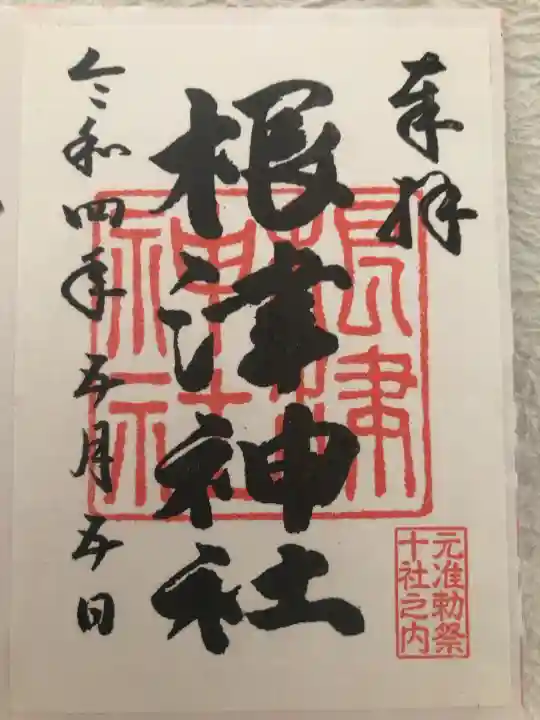 奉拝
根津神社
令和四年五月五日
根津神社
元准勅祭
十社之内